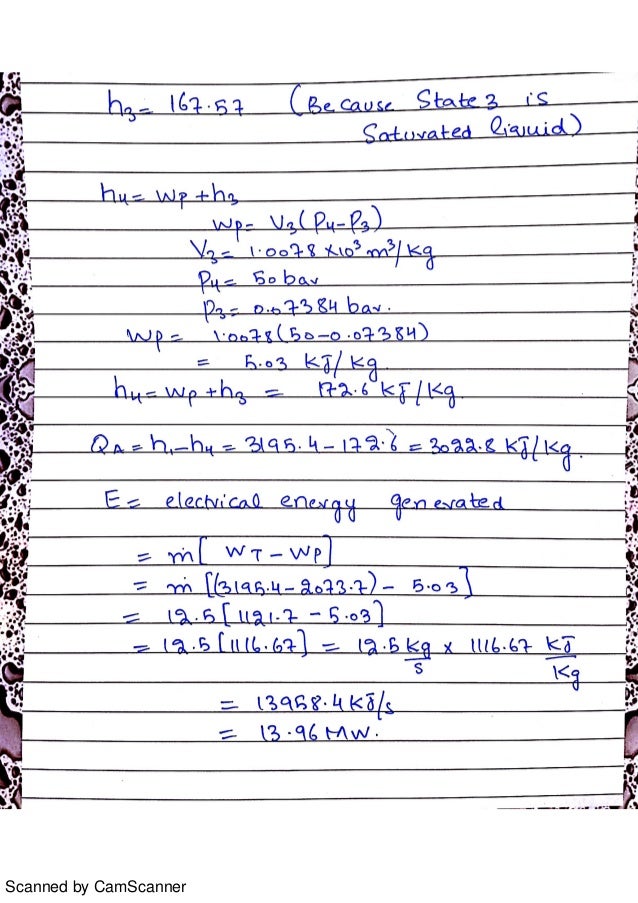 h3 = 167.57 (Because State 3 is
Saturated liquid)
h4 = Wp + h3
Wp = V3(P4-P3)
V3 = 1.0078 x10^3 m^3/kg
P4 = 50 bar
P3 = 0.07384 bar.
Wp = 1.0078(50-0.07384)
= 5.03 kJ/kg.
h4 = Wp + h3 = 172.6 kJ/kg.
QA = h1-h4 = 3195.4 - 172.6 = 3022.8 kJ/kg.
E = electrical energy generated
= ṁ[WT - WP]
= ṁ[(3195.4-2073.7) - 5.03]
= 12.5[1121.7 - 5.03]
= 12.5[1116.67] = 12.5 kg/s x 1116.67 kJ/kg
= 13958.4 kJ/s
= 13.96 MW.
Scanned by CamScanner